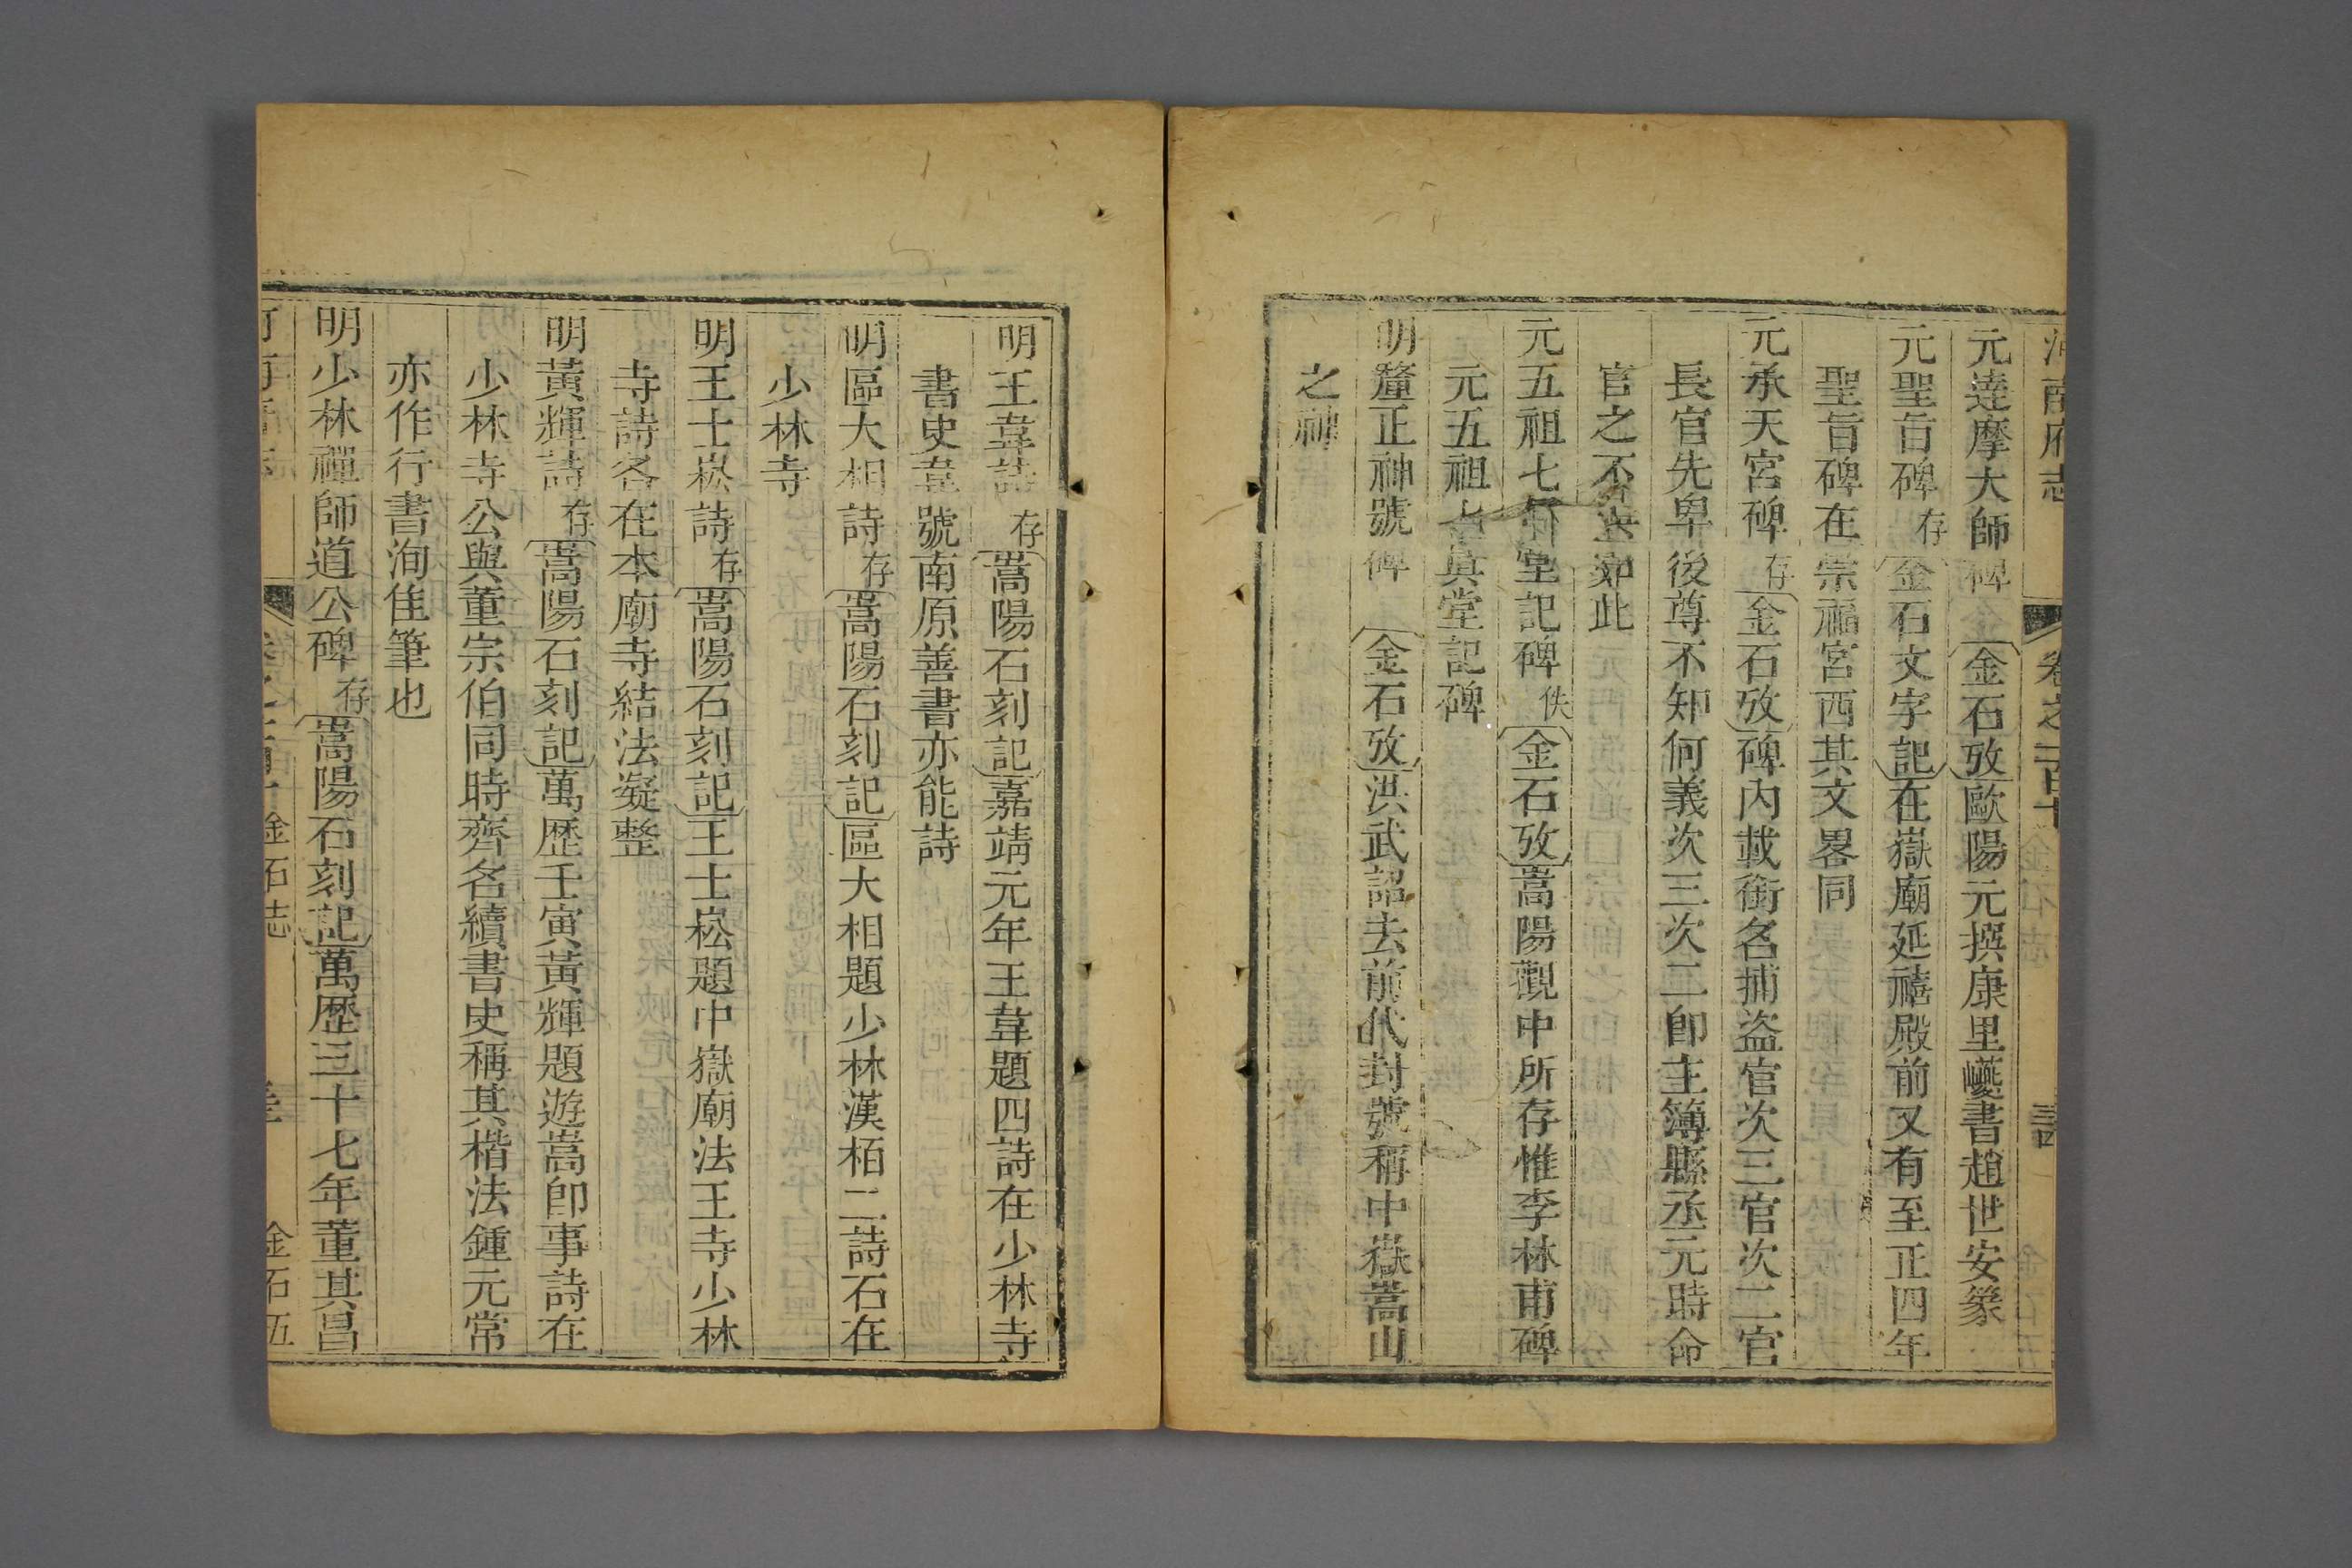 河南府志 卷之一百十 金石志
元達摩大師碑 金石攷歐陽元撰康里巙書趙世安篆
元聖旨碑 存 金石文字記在嶽廟延禧殿前又有至正四年
聖旨碑在崇福宮西其文畧同
元承天宮碑 存 金石攷碑內載銜名捕盜官次三官次二官
長官先卑後尊不知何義次三次二卽主簿縣丞元時命
官之不 如此
元五祖七 堂記碑 佚 金石攷嵩陽觀中所存惟李林甫碑
元五祖七眞堂記碑
明釐正神號碑 金石攷洪武詔去前代封號稱中嶽嵩山
之神
明王韋詩 存 嵩陽石刻記嘉靖元年王韋題四詩在少林寺
書史韋號南原善書亦能詩
明區大相詩 存 嵩陽石刻記區大相題少林漢栢二詩石在
少林寺
明王士崧詩 存 嵩陽石刻記王士崧題中嶽廟法王寺少林
寺詩各在本廟寺結法凝整
明黃輝詩 存 嵩陽石刻記萬歷壬寅黃輝題遊嵩卽事詩在
少林寺公與董宗伯同時齊名續書史稱其楷法鍾元常
亦作行書洵佳筆也
明少林禪師道公碑 存 嵩陽石刻記萬歷三十七年董其昌
金石志 金石五